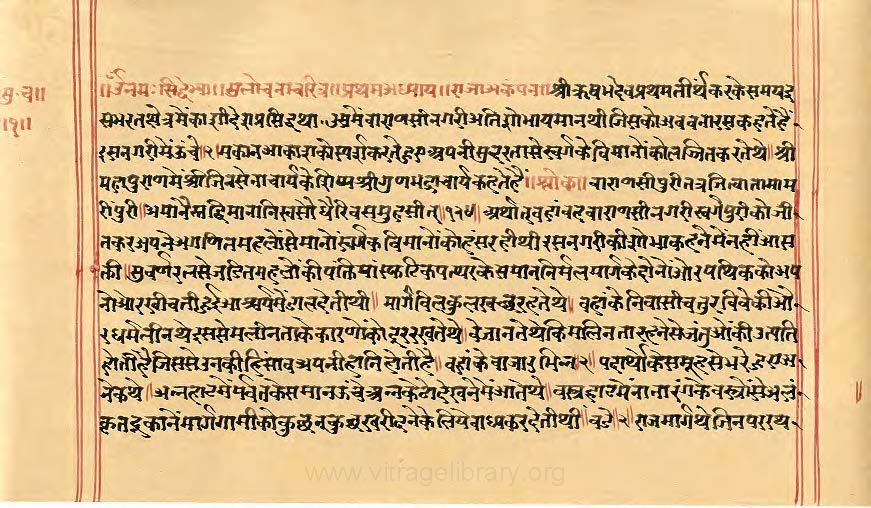 ॥ॐनमः सिद्धेभ्यः॥सुलोचनाचरित्र॥प्रथमअध्याय॥राजाअकंपन॥श्रीऋषभदेवप्रथमतीर्थंकरकेसमयइ
सभरतक्षेत्रमेंकाशीदेशप्रसिद्धथा उसमेंवाराणसीनगरीअतिशोभायमानथीजिसकोअबबनारसकहतेहैं
इसनगरीमेंऊंचे२मकानआकाशकोस्पर्शकरतेहुएअपनीसुंदरतासेस्वर्गकेविमानोंकोलज्जितकरतेथे॥श्री
महापुराणमेंश्रीजिनसेनाचार्यकेशिष्यश्रीगुणभद्राचार्यकहतेहैं॥श्लोक॥वाराणसीपुरीतत्रजित्वातामाम
रींपुरीं॥अमानैस्तद्विमानानिस्वसौधैरिवसमुहसीत्॥१२४॥अर्थात्वहांवहवाराणसीनगरीस्वर्गपुरीकोजी
तकरअपनेअगणितमहलोंसेमानोंस्वर्गकेविमानोंकोहंसरहीथीइसनगरीकीशोभाकहनेमेंनहींआस
क्ती॥सुवर्णरत्नसेजडितमहलोंकीपंक्तियांस्फटिकपत्थरकेसमाननिर्मलमार्गकेदोनोंओरपथिककोअप
नीओरखींचतीहुईआश्चर्यमेंडालदेतीथी॥मार्गबिलकुलस्वच्छरहतेथे॥वहांकेनिवासीचतुरविवेकीऔ
रधर्मचीनथेइससेमलीनताकेकारणोंकोदूररखतेथे॥वेजानतेथेकिमलिनतारहनेसेजंतुओंकीउत्पत्ति
होतीहैजिससेउनकीहिंसावअपनीहानिहोतीहै॥वहांकेबाजारभिन्न२पदार्थोंकेसमूहसेभरेहुएअ
नेकथे॥अन्नहाटमेंपर्वतकेसमानऊंचेअन्नकेढेरदेखनेमेंआतेथे॥वस्त्रहाटमेंनानारंगकेवस्त्रोंसेअलं
कृतदुकानेंमार्गगामीकोकुछनकुछखरीदनेकेलियेबाध्यकरदेतीथी॥बडे२राजमार्गथेजिनपररथ
सु.च॥
॥१॥
www.vitragelibrary.org